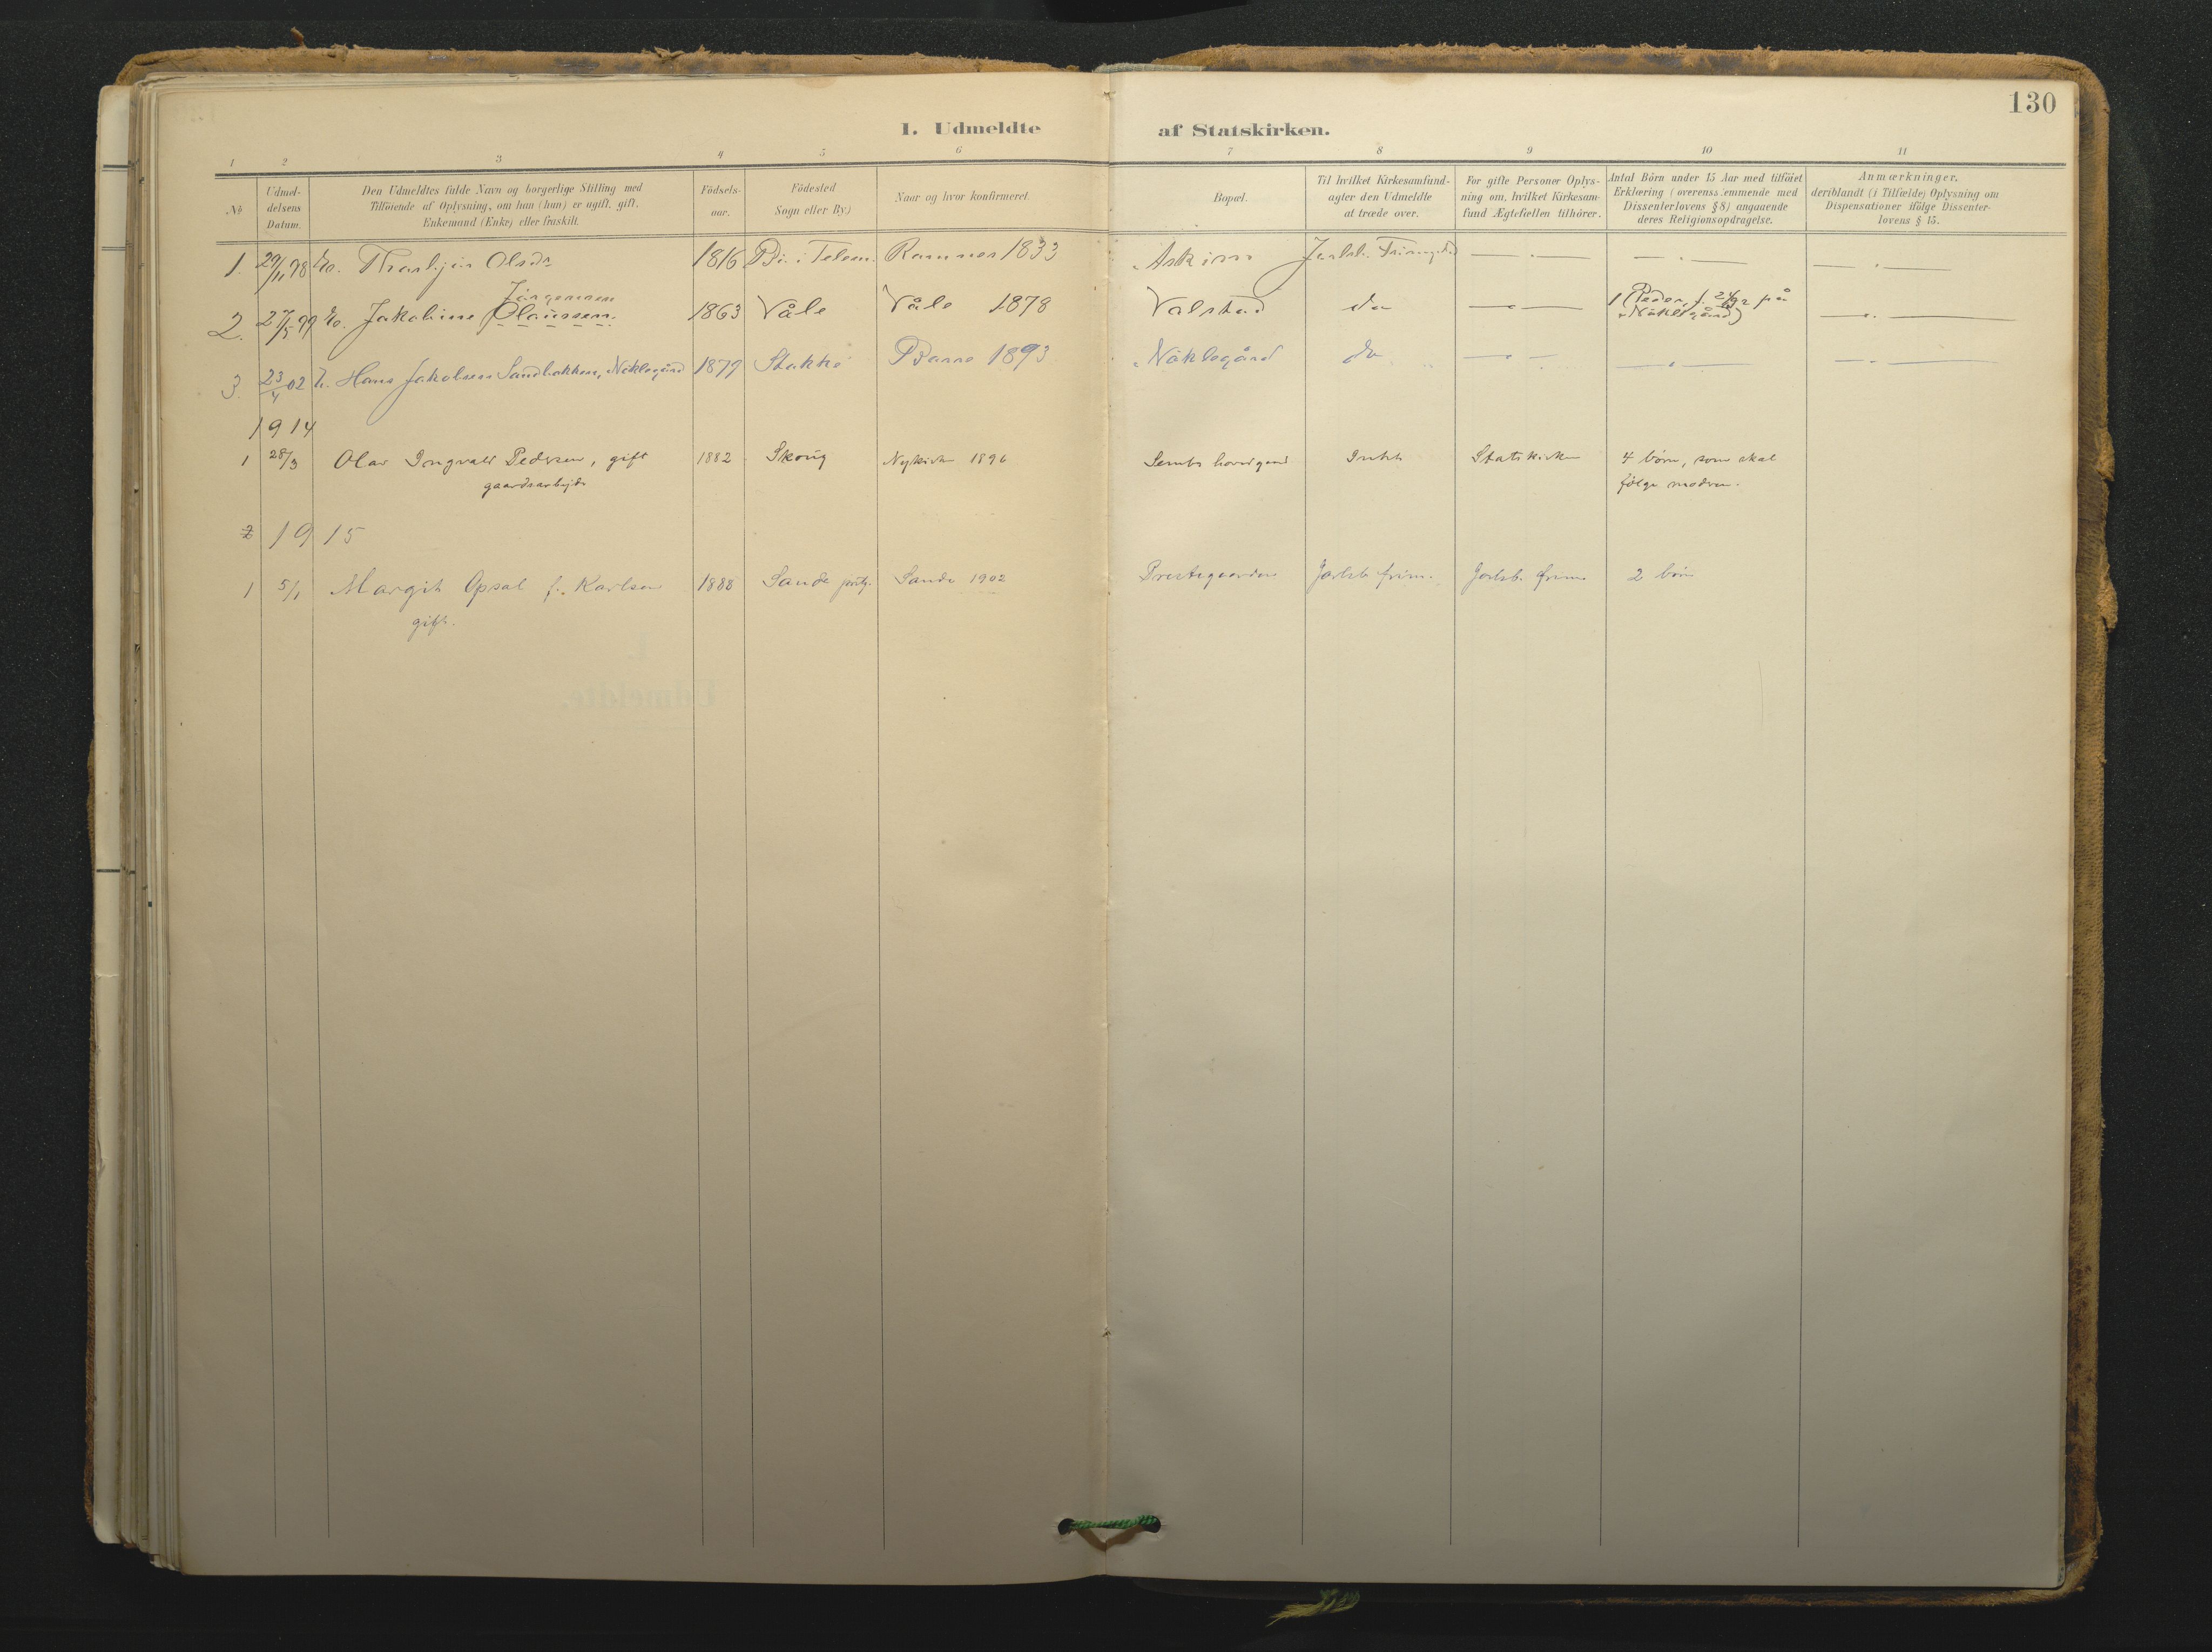 130
I. Udmeldte af Statskirken.
1 2 3 4 5 6 7 8 9 10 11
№
Udmel-
delsens
Datum.
Den Udmeldtes fulde Navn og borgerlige Stilling med
Tilföiende af Oplysning, om han (hun) er ugift, gift,
Enkemand (Enke) eller fraskilt.
Födsels-
aar.
Födested
Sogn eller By)
Naar og hvor konfirmeret.
Bopæl.
Til hvilket Kirkesamfund-
agter den Udmeldte
at træde over.
For gifte Personer Oplys-
ning om, hvilket Kirkesam-
fund Ægtefællen tilhörer.
Antal Börn under 15 Aar med tilföiet
Erklæring (overensstemmende med
Dissenterlovens § 8) angaaende
deres Religionsopdragelse.
Anmærkninger,
deriblandt (i Tilfælde) Oplysning om
Dispensationer ifölge Dissenter-
lovens § 15.
1. 29/11 98 Olsdr 1816 Bö i Telem. Ramnes 1833 Askim Jarlsb.
Jörgensen
2. 27/5 99 Jakobine Claussen 1863 Våle Våle 1878 Valstad do 1 (Peder, f. på
Nöklegård)
3. 23/4 02 Hans Jakobsen Sandbakken, Nöklegård 1879 Stokke Borre 1893 Nöklegård do
1914
1 28/3 Olav Ingvald Pedersen, gift 1882 Skoug Nykirke 1896 Sembs hovedgaard Statskirken 4 börn, som skal
gaardsarbejder fölge modren.
2 1915
1 5/1 Margit Opsal f. Karlsen 1888 Sande prstg. Sande 1902 Prestegaarden Jarlsb. frim. Jarlsb. frim. 2 börn
gift.